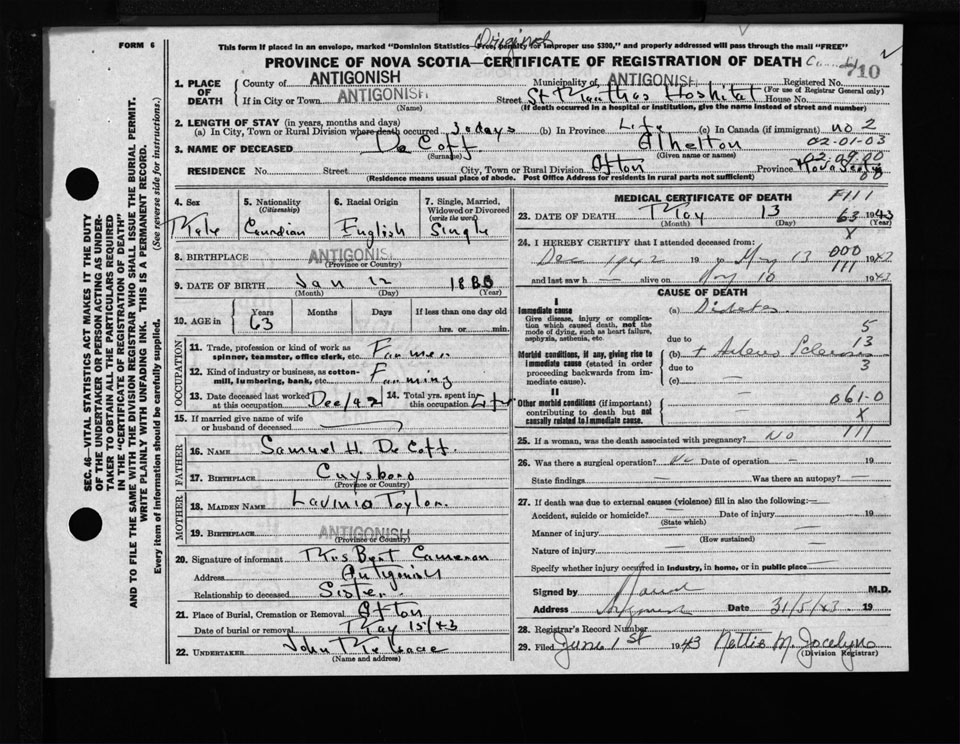 Original
FORM 6
This form if placed in an envelope, marked "Dominion Statistics—Free, penalty for improper use $300," and properly addressed will pass through the mail "FREE"
PROVINCE OF NOVA SCOTIA—CERTIFICATE OF REGISTRATION OF DEATH
710
1. PLACE OF DEATH
County of ANTIGONISH Municipality of ANTIGONISH Registered No.
(For use of Registrar General only)
If in City or Town ANTIGONISH Street St Marthas Hospital House No.
(Name) (If death occurred in a hospital or institution, give the name instead of street and number)
2. LENGTH OF STAY (in years, months and days)
(a) In City, Town or Rural Division where death occurred 3 days (b) In Province Life (c) In Canada (if immigrant) no 2
02-01-03
3. NAME OF DECEASED De Coff Athelton
(Surname) (Given name or names)
02.09.00
RESIDENCE No. Street City, Town or Rural Division Afton Province Nova Scotia
00
(Residence means usual place of abode. Post Office Address for residents in rural parts not sufficient)
4. Sex Male
5. Nationality (Citizenship) Canadian
6. Racial Origin English
7. Single, Married, Widowed or Divorced (write the word) Single
8. BIRTHPLACE ANTIGONISH
(Province or Country)
9. DATE OF BIRTH Jan 12 1880
(Month) (Day) (Year)
10. AGE in Years 63 Months Days If less than one day old
hrs. or min.
OCCUPATION
11. Trade, profession or kind of work as spinner, teamster, office clerk, etc. Farmer
12. Kind of industry or business, as cotton-mill, lumbering, bank, etc. Farming
13. Date deceased last worked at this occupation Dec/42
14. Total yrs. spent in this occupation Life
15. If married give name of wife or husband of deceased
FATHER
16. NAME Samuel H. De Coff
17. BIRTHPLACE Guysboro
(Province or Country)
MOTHER
18. MAIDEN NAME Lavinia Taylor
19. BIRTHPLACE ANTIGONISH
(Province or Country)
20. Signature of informant Mrs Bert Cameron
Address Antigonish
Relationship to deceased Sister
21. Place of Burial, Cremation or Removal Afton
Date of burial or removal May 15/43
22. UNDERTAKER John
(Name and address)
MEDICAL CERTIFICATE OF DEATH
F111
23. DATE OF DEATH May 13 63 1943
(Month) (Day) (Year)
X
24. I HEREBY CERTIFY that I attended deceased from:
000
Dec 1942 19 to May 13 1943
111
and last saw h — alive on May 10 1943
CAUSE OF DEATH
I
Immediate cause
Give disease, injury or complication which caused death, not the mode of dying, such as heart failure, asphyxia, asthenia, etc.
(a) Diabetes
5
due to
13
Morbid conditions, if any, giving rise to immediate cause (stated in order proceeding backwards from immediate cause).
(b) + Arterio Sclerosis
due to 3
(c) —
II
Other morbid conditions (if important) contributing to death but not causally related to immediate cause.
061-0
X
111
25. If a woman, was the death associated with pregnancy? No
26. Was there a surgical operation? No Date of operation — 19
State findings — Was there an autopsy? —
27. If death was due to external causes (violence) fill in also the following:—
Accident, suicide or homicide? — Date of injury — 19
(State which)
Manner of injury —
(How sustained)
Nature of injury —
Specify whether injury occurred in industry, in home, or in public place —
Signed by M.D.
Address Date 31/5/43 19
28. Registrar's Record Number
29. Filed June 1st 1943 Nettie M. Jocelyn
(Division Registrar)
SEC. 46—VITAL STATISTICS ACT MAKES IT THE DUTY OF THE UNDERTAKER OR PERSON ACTING AS UNDERTAKER TO OBTAIN ALL THE PARTICULARS REQUIRED IN THE "CERTIFICATE OF REGISTRATION OF DEATH"
AND TO FILE THE SAME WITH THE DIVISION REGISTRAR WHO SHALL ISSUE THE BURIAL PERMIT.
WRITE PLAINLY WITH UNFADING INK. THIS IS A PERMANENT RECORD.
Every item of information should be carefully supplied. (See reverse side for instructions.)